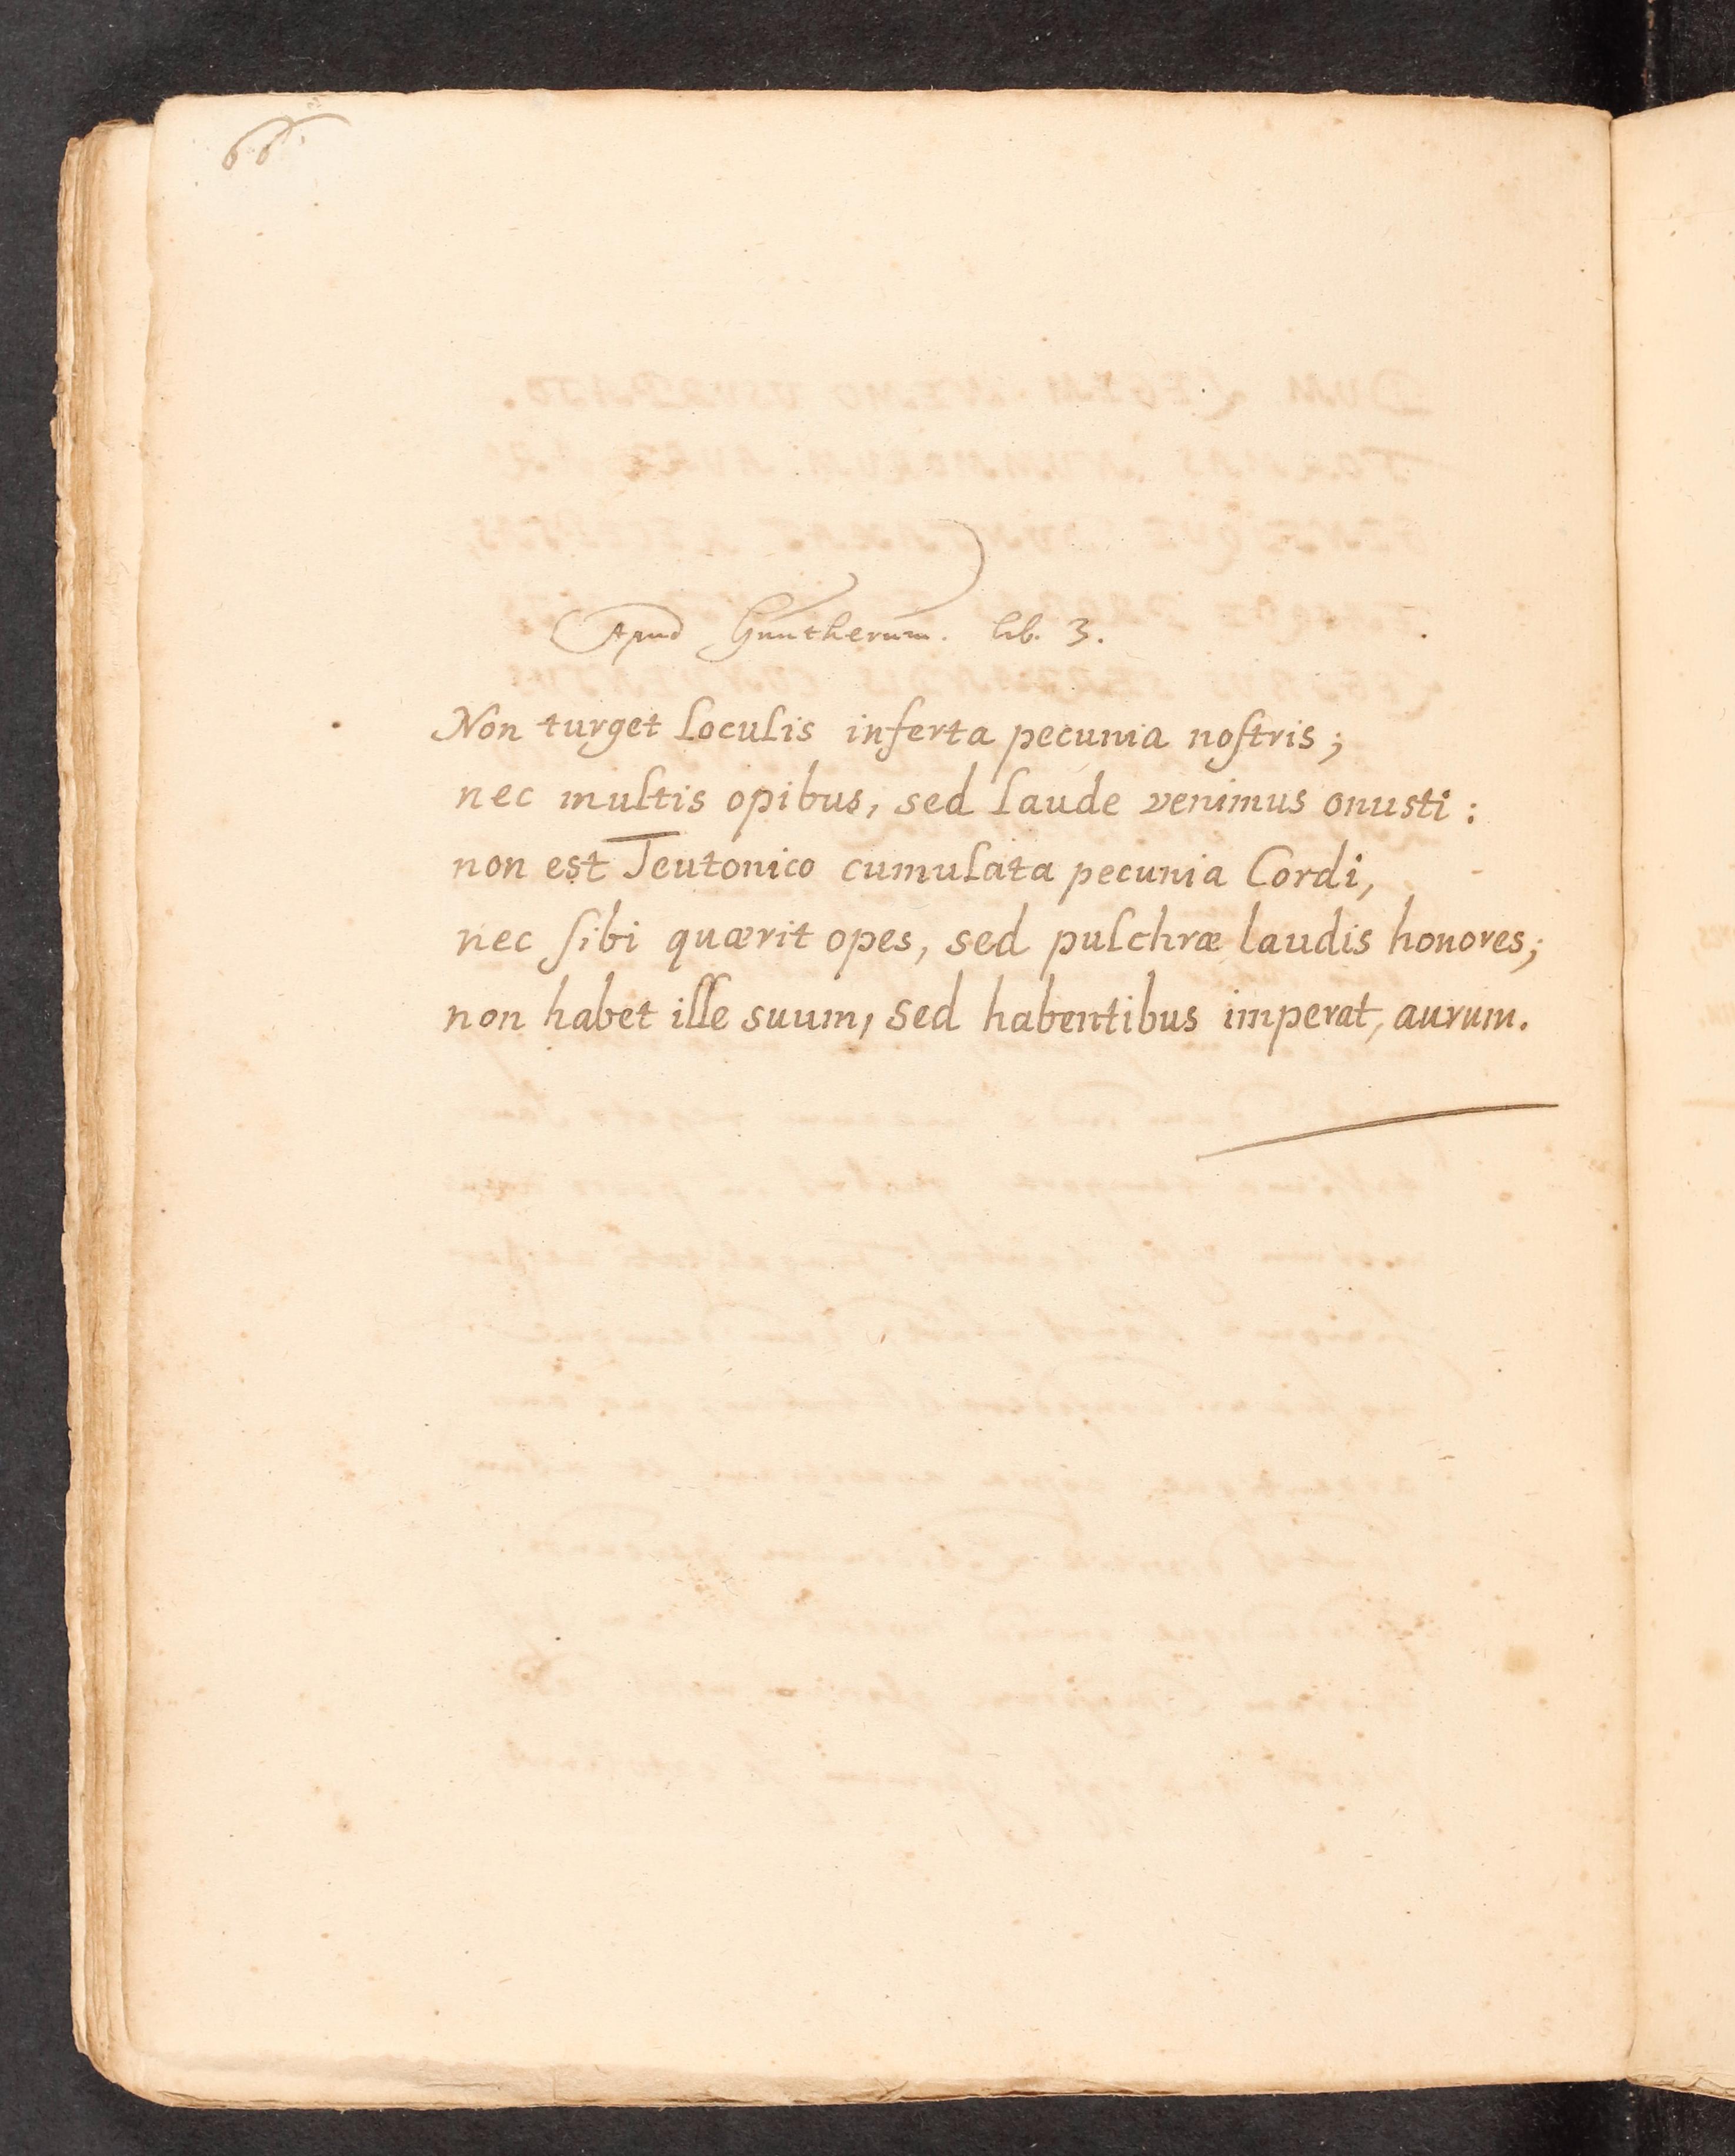 66.
Apud Guntherum. lib. 3.
Non turget loculis inſerta pecunia noſtris;
nec multis opibus, sed laude venimus onusti:
non est Teutonico cumulata pecunia Cordi,
nec ſibi quærit opes, sed pulchræ laudis honores;
non habet ille suum, sed habentibus imperat, aurum.